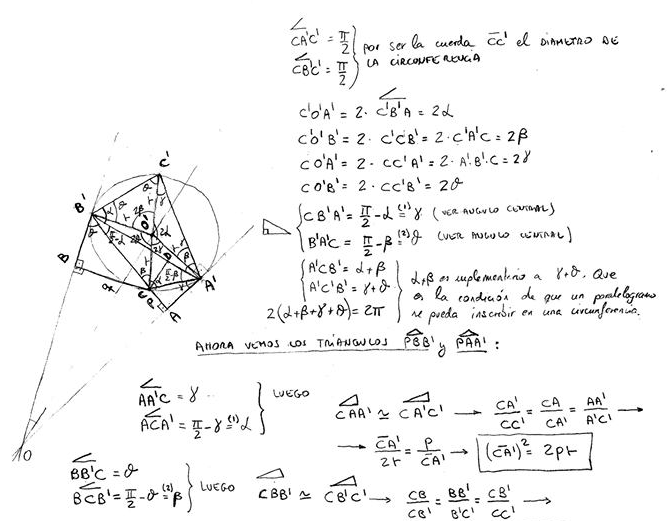 CA'C' = π/2
CB'C' = π/2
por ser la cuerda CC' el DIAMETRO DE
LA CIRCONFERENCIA
C'O'A' = 2 · C'B'A = 2α
C'O'B' = 2 · C'CB' = 2 · C'A'C = 2β
CO'A' = 2 · CC'A' = 2 · A'B'C = 2γ
CO'B' = 2 · CC'B' = 2ϑ
CB'A' = π/2 - α (1)= γ (VER ANGULO CENTRAL)
B'A'C = π/2 - β (2)= ϑ (VER ANGULO CENTRAL)
A'CB' = α+β
A'C'B' = γ+ϑ
2(α+β+γ+ϑ) = 2π
α+β es suplementario a γ+ϑ. Que
es la condición de que un paralelogramo
se pueda inscribir en una circunferencia.
C'
B'
O'
B
C
A'
A
P
O
AHORA VEMOS LOS TRIANGULOS PBB' y PAA' :
AA'C = γ
ACA' = π/2 - γ (1)= α
LUEGO
CAA' ≃ CA'C' → CA'/CC' = CA/CA' = AA'/A'C' →
→ CA'/2r = P/CA' → (CA')² = 2pr
BB'C = ϑ
BCB' = π/2 - ϑ (2)= β
LUEGO
CBB' ≃ CB'C' → CB/CB' = BB'/B'C' = CB'/CC' →